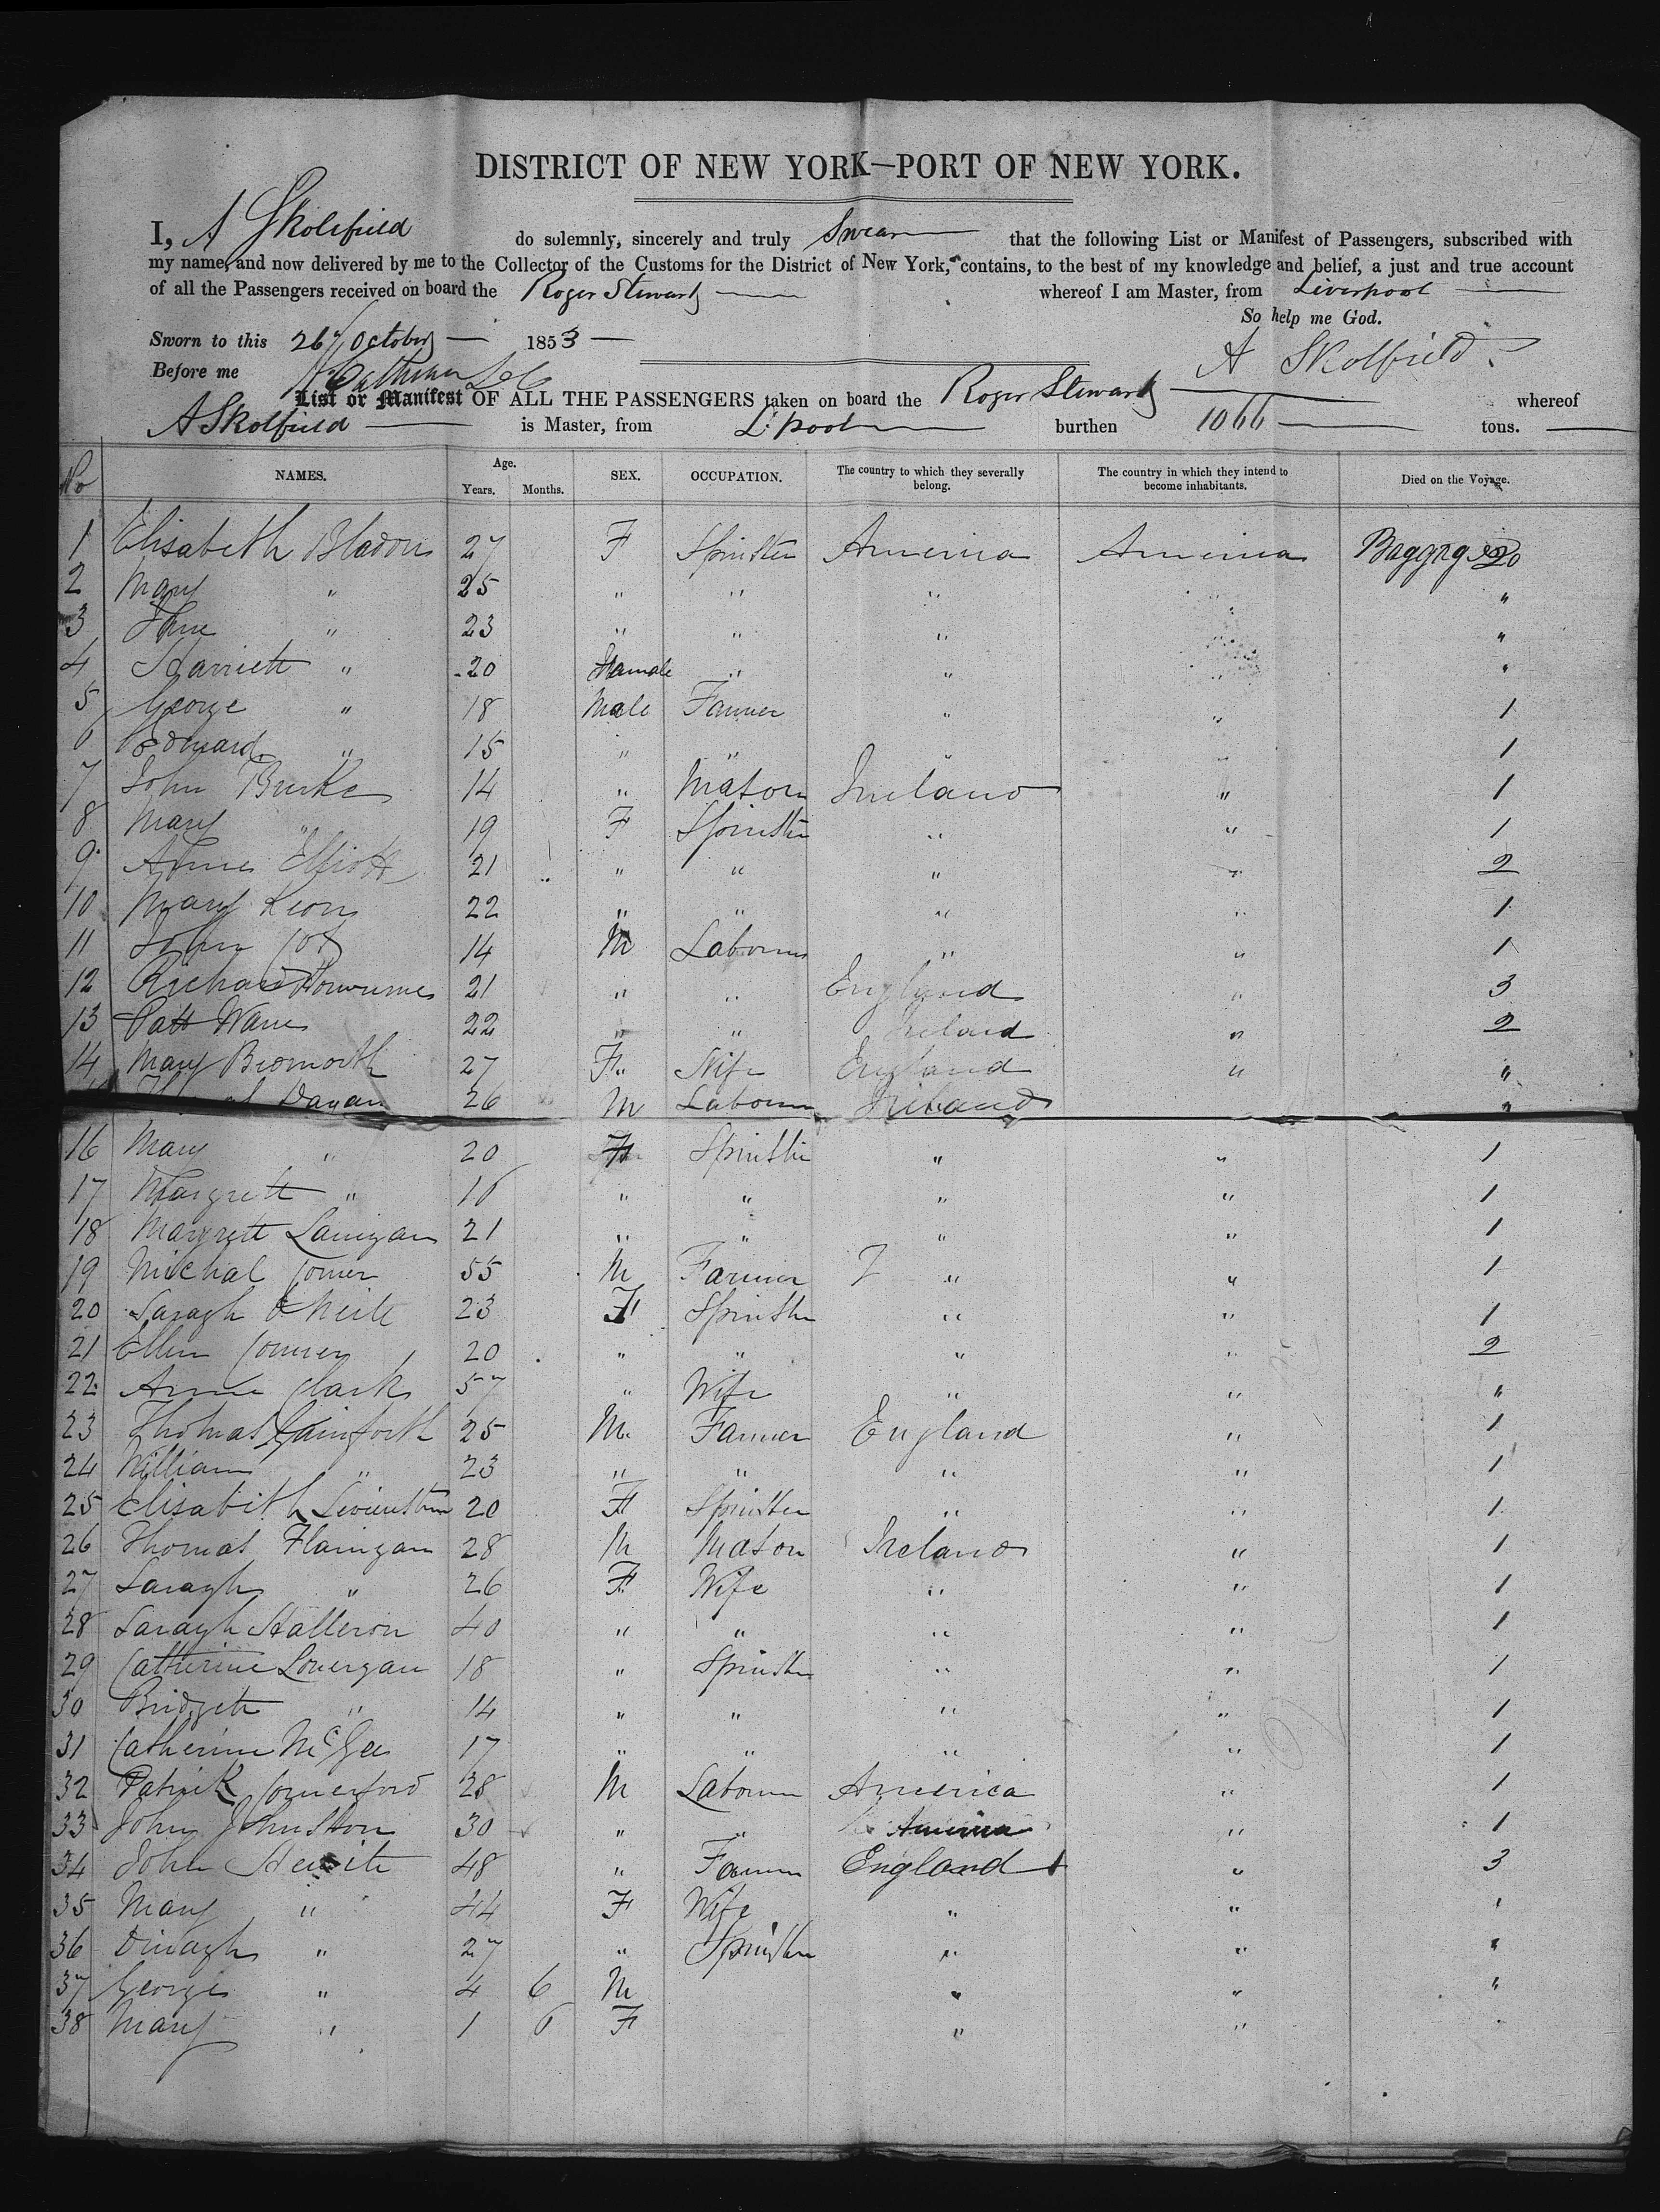 DISTRICT OF NEW YORK—PORT OF NEW YORK.
I, A Skolefield do solemnly, sincerely and truly Swear that the following List or Manifest of Passengers, subscribed with
my name, and now delivered by me to the Collector of the Customs for the District of New York, contains, to the best of my knowledge and belief, a just and true account
of all the Passengers received on board the Roger Stewart whereof I am Master, from Liverpool
So help me God.
Sworn to this 26 October 1853
A Skolfield
Before me
List or Manifest OF ALL THE PASSENGERS taken on board the Roger Stewart whereof
A Skolfield is Master, from L:pool burthen 1066 tons.
No NAMES. Age. Years. Months. SEX. OCCUPATION. The country to which they severally belong. The country in which they intend to become inhabitants. Died on the Voyage.
1 Elisabeth Bladon 27 F Spinster America America Baggage 20
2 Mary " 25 " " " " "
3 Jane " 23 " " " " "
4 Harriett " 20 Female " " " "
5 George " 18 Male Farmer " " 1
6 Edward " 15 " " " " 1
7 John Burke 14 " Mason Ireland " 1
8 Mary " 19 F Spinster " " 1
9 Anne Elliott 21 " " " " 2
10 Mary Keon 22 " " " " 1
11 John Coy 14 M Labourer " " 1
12 Richard 21 " " England " 3
13 Patt 22 " " Ireland " 2
14 Mary 27 F Wife England " "
26 M Labourer Ireland "
16 Mary " 20 F Spinster " " 1
17 Margrett " 16 " " " " 1
18 Margrett Lanigan 21 " " " " 1
19 Michal Comer 55 M Farmer " " 1
20 Saragh O Neile 23 F Spinster " " 1
21 Ellen 20 " " " " 2
22 Anne Clark 57 " Wife " " "
23 Thomas Gainforth 25 M. Farmer England " 1
24 William " 23 " " " " 1
25 Elisabith 20 F Spinster " " 1
26 Thomas Flanigan 28 M Mason Ireland " 1
27 Saragh " 26 F Wife " " 1
28 Saragh Halleron 40 " " " " 1
29 Catherine Lonergan 18 " Spinster " " 1
30 Bridgett " 14 " " " " 1
31 Catherine McGee 17 " " " " 1
32 Patrick Comerford 28 M Labourer America " 1
33 John Johnston 30 " " America " 1
34 John 48 " Farmer England " 3
35 Mary " 44 F Wife " " "
36 Dinagh " 27 " Spinster " " "
37 George " 4 6 M " " "
38 Mary " 1 6 F " "